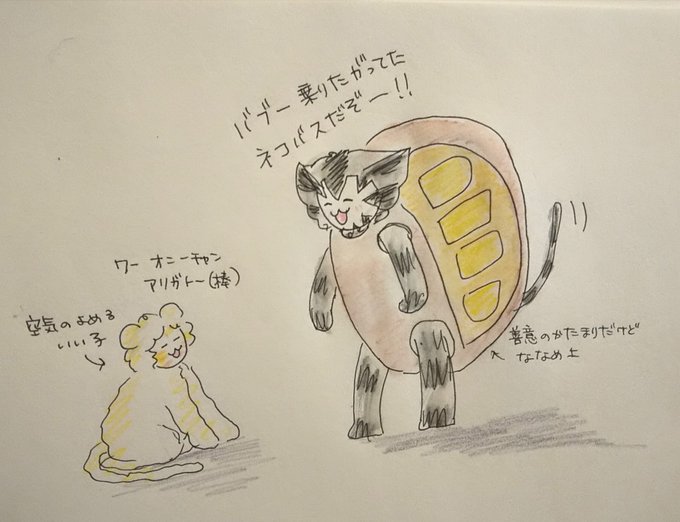 バブー乗りたがってた
ネコバスだぞー!!
ワー オニーチャン
アリガトー(棒)
空気のよめる
いい子
善意のかたまりだけど
ななめ上